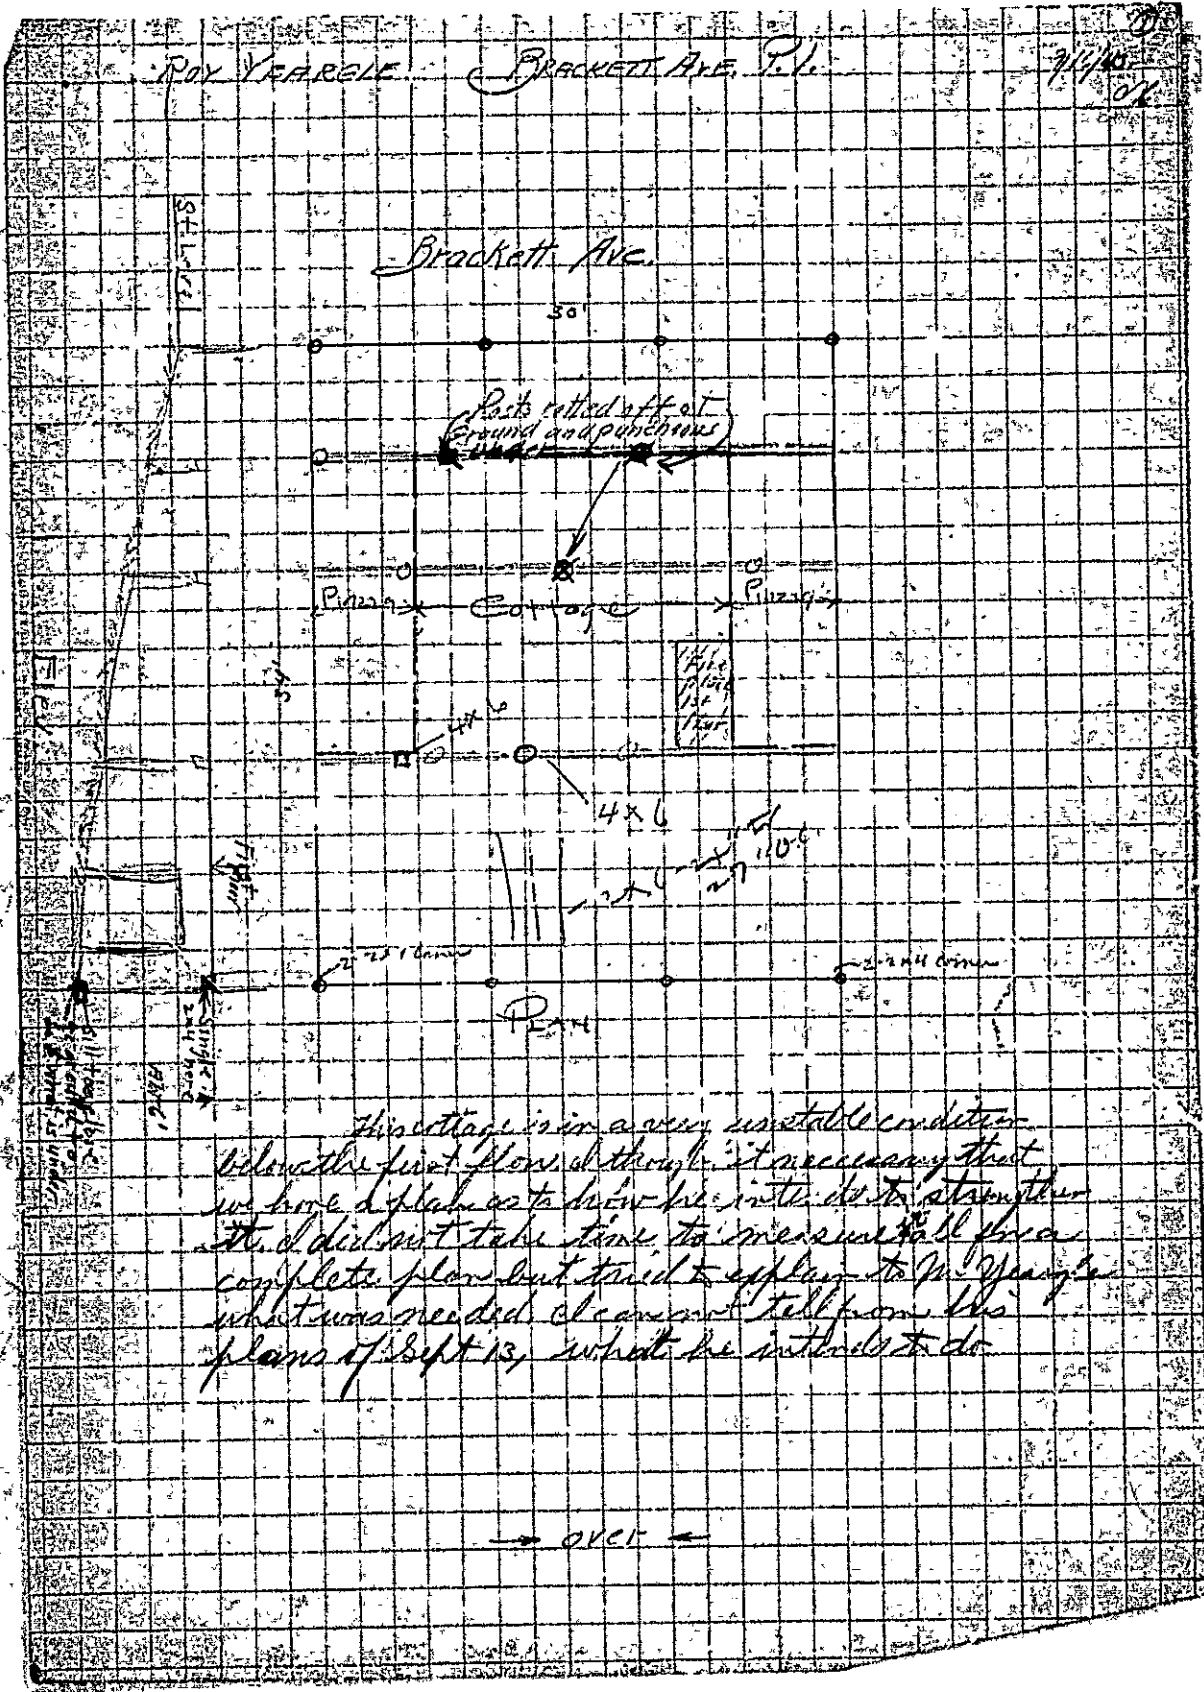 ROY YEARGLE. BRACKETT AVE. P.I.
OK
Brackett Ave.
30'
Posts rotted off at
ground and punchions
under
Piazza Cottage Piazza
Fire
place
1st
floor
34'
4x6
4x6
2x6
First
Floor
2-2x4 corner
2-2x4 corner
PLAN
Single
2x4 here
This cottage is in a very unstable condition
below the first floor, although it neccessary that
we have a plan as to how he intends to strengthen
it. I did not take time to measure it all for a
complete plan but tried to explain to Mr Yeargle
what was needed. I can not tell from his
plans of Sept 13, what he intends to do
→ over ←